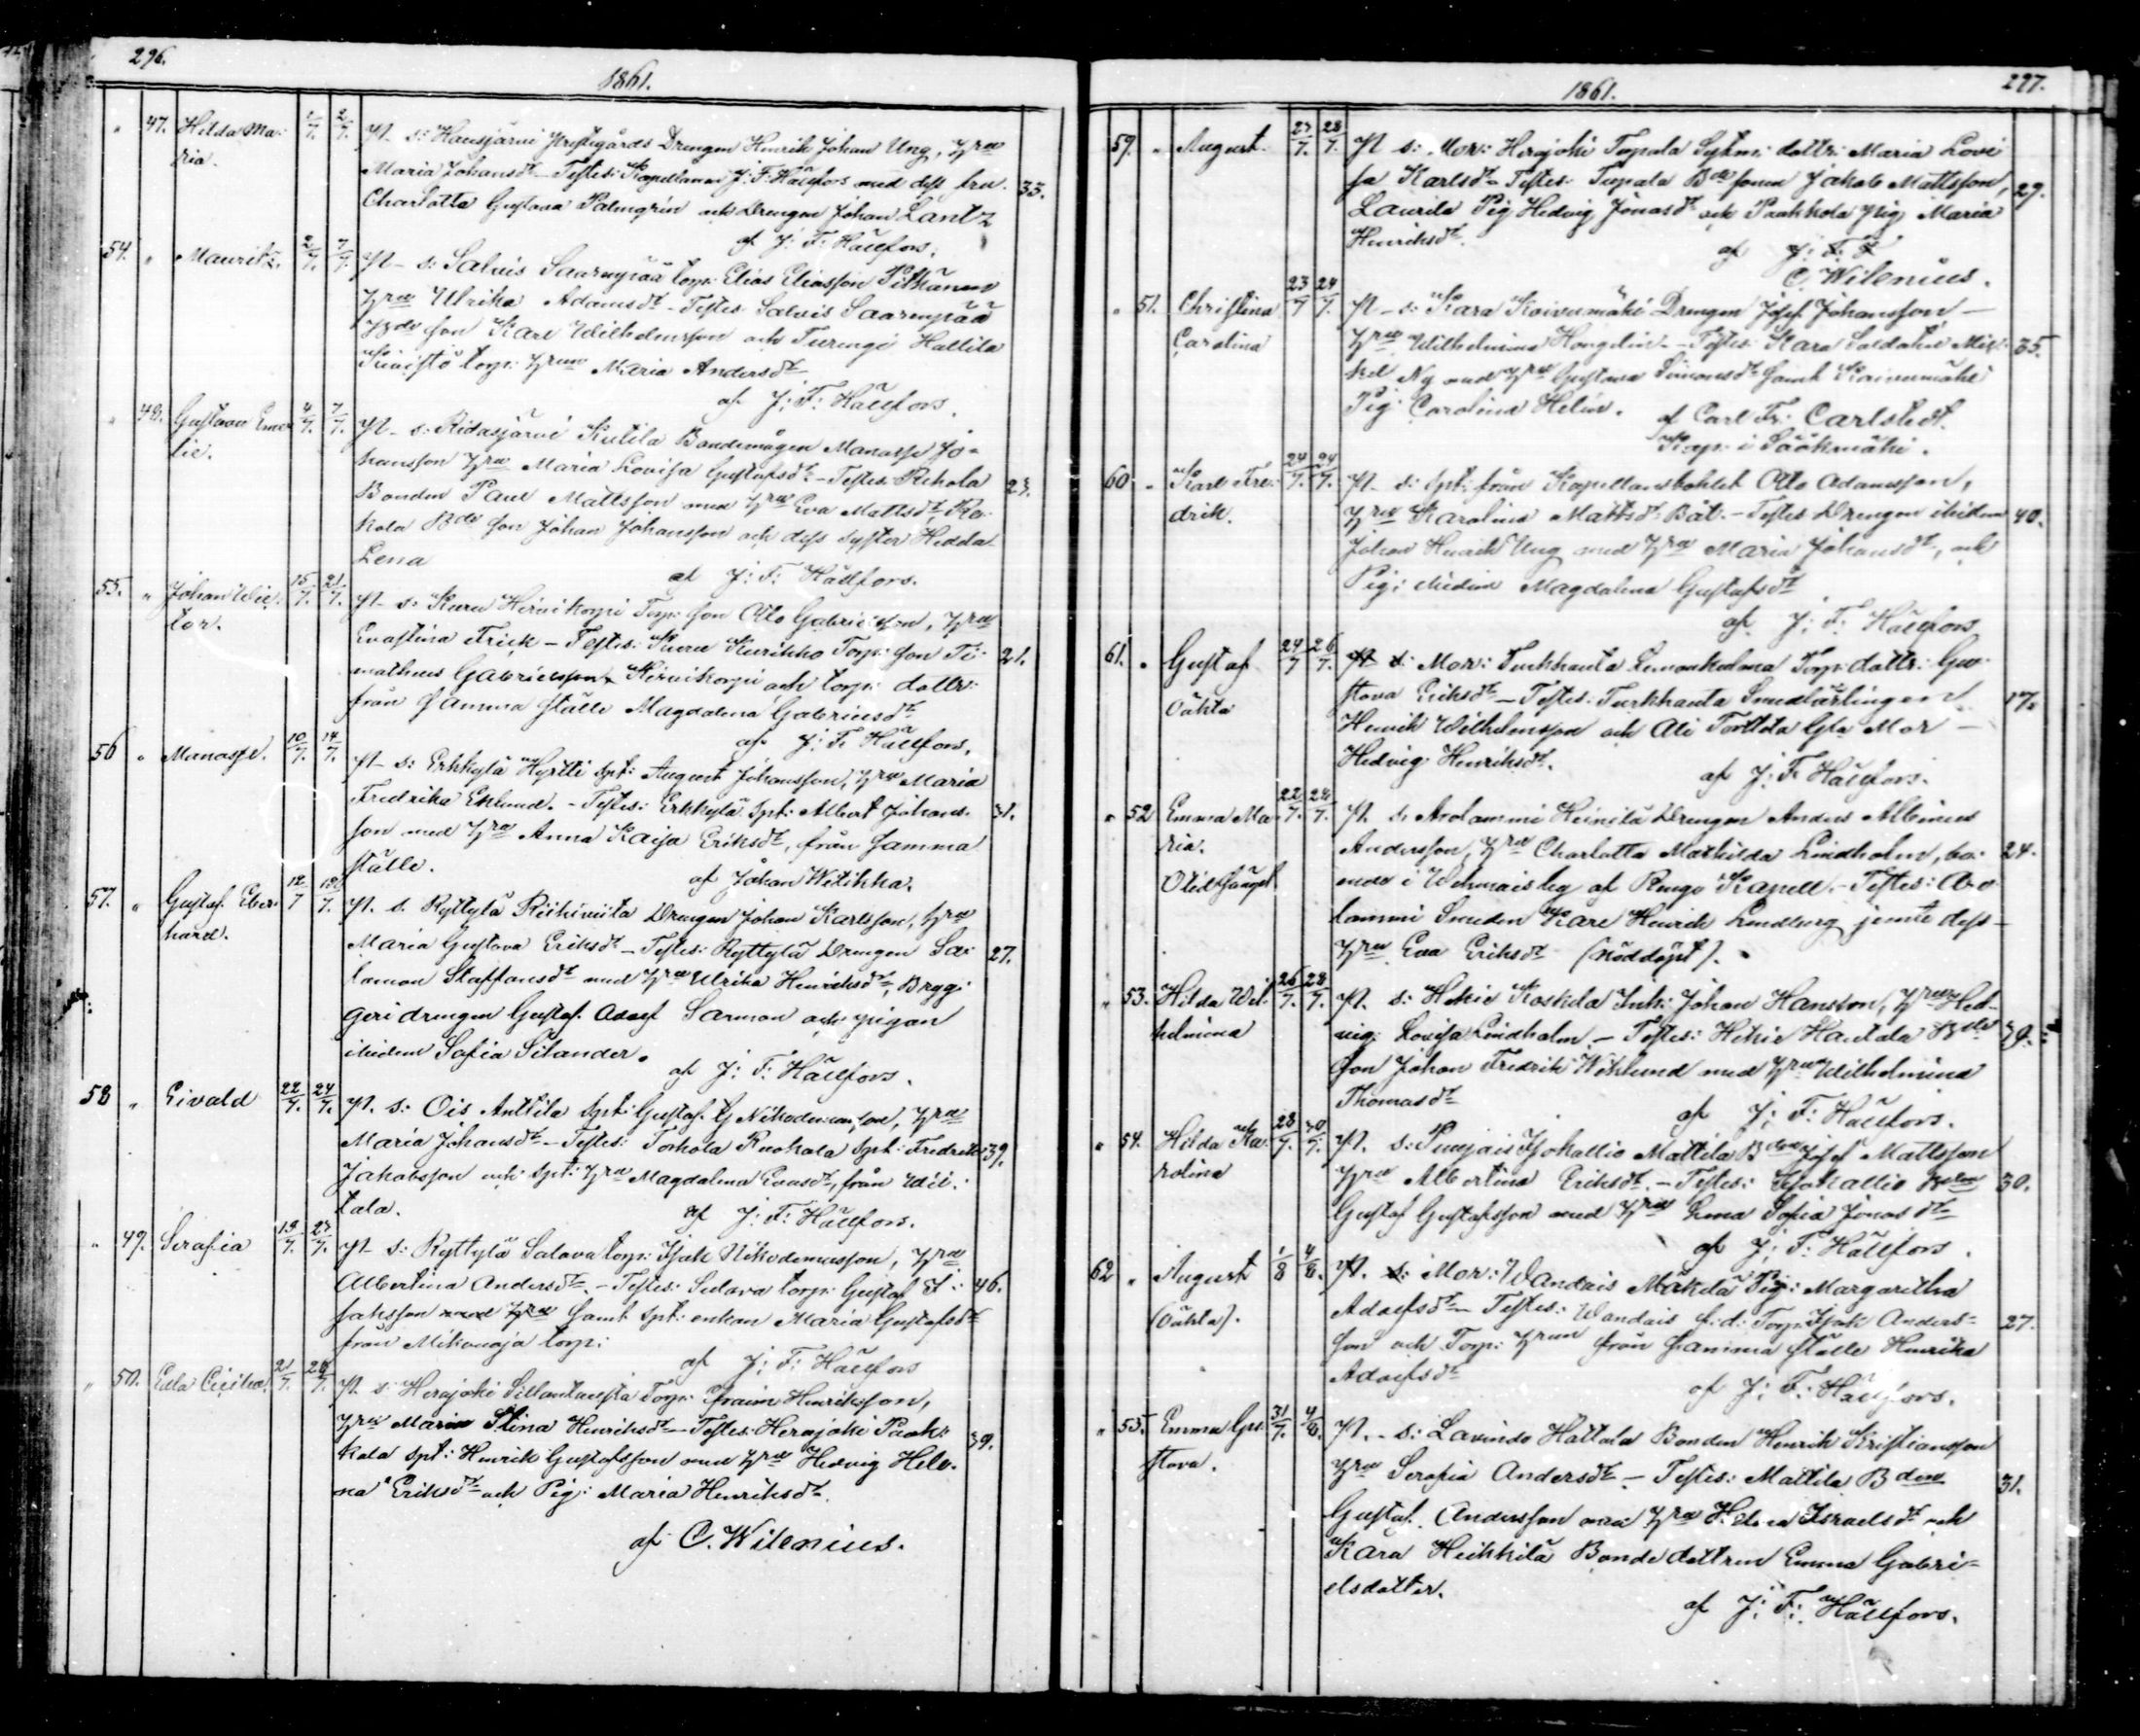 296.
1861.
47. Hilda Ma- 1/7. 2/7. Pt. s: Hausjärvi Prestgårds Drengen Henrik Johan Ung, Hru
ria. Maria Johansdr – Testes: Kapellanen J. F. Hällfors med dess fru 35.
Charlotta Gustava Palmgrén och Drengen Johan Lantz
af J: F: Hällfors.
54. " Mauritz. 2/7. 7/7. Pt – s: Salvis Saarenpää torp: Elias Eliasson Pitkänen
Hru Ulrika Adamsdr – Testes: Salvis Saarenpää
son Karl Wilhelmsson och Turengi Hallila
torp: Hrun Maria Andersdr
af J: F: Hällfors.
" 48. Gustava Eme- 4/7. 7/7. Pt – s: Ridasjärvi Kutila Bondemågen Manasse Jo-
lie. hansson Hru Maria Lovisa Gustafsdr – Testes: Rehola 23.
Bonden Paul Mattsson med Hru Eva Mattsdr, Ko-
kola Bde son Johan Johansson och dess syster Hedda
Lena
af J: F: Hällfors.
55. " Johan Wic- 15/7. 21/7. Pt – s: Kuru Hirvikorpi Torp: son Otto Gabrielsson, Hru
tor. Evastina Frick – Testes: Kuru Kurikko Torp: son Ti- 21.
motheus Gabrielsson Hirvikorpi och torp: dottr:
från samma ställe Magdalena Gabrielsdr
af J: F. Hällfors.
56 " Manasse. 10/7. 14/7. Pt – s: Erkkylä Hyrtti Spt: August Johansson, Hru Maria
Fredrika Eklund. – Testes: Erkkylä Spt: Albert Johans- 31.
son med Hru Anna Kaisa Eriksdr, från samma
ställe.
af Johan Witikka.
57. " Gustaf Eber- 12/7 18/7. Pt. s. Ryttylä Riihiviita Drengen Johan Karlsson, Hru
hard. Maria Gustava Eriksdr – Testes: Ryttylä Drengen Sa- 27.
lomon Staffansdr med Hru Ulrika Henriksdr, Bryg-
geri drengen Gustaf Adolf Sarman och pigan
ibidem Sofia Silander.
af J: F: Hällfors.
58 " Eivald 22/7. 24/7. Pt. s: Ois Anttila Spt: Gustaf G Nikodemusson, Hru
Maria Johansdr – Testes: Torhola Ruohala Spt: Fredrik 39.
Jakobsson och Spt: Hru Magdalena Evasdr, från Wii-
tala.
af J: F: Hällfors.
" 49. Serafia 19/7. 27/7. Pt – s: Ryttylä Salava torp: Isak Nikodemusson, Hru
Albertina Andersdr. – Testes: Salava torp: Gustaf I- 46.
saksson samt Spt: enkan Maria Gustafsdr
från Mikonoja torp:
af J: F: Hällfors
" 50. Edla Cecilia. 21/7. 28/7. Pt. s: Herajoki Sillantausta Torp: Efraim Henriksson,
Hru Maria Stina Henriksdr – Testes: Herajoki Paak- 39.
kola Spt: Henrik Gustafsson med Hru Hedvig Hele-
na Eriksdr och Pig: Maria Henriksdr.
af C. Wilenius.
1861. 297.
59. " August. 27/7. 28/7. Pt s: Mor: Herajoki Topala dottr: Maria Lovi
sa Karlsdr – Testes: Topala Bde sonen Jakob Mattsson, 29.
Laurila Pig Hedvig Jonasdr och Paakkola Pig Maria
Henriksdr.
af J: F: F
C. Wilenius.
" 51. Christina 23/7 24/7. Pt – s: Kara Koivumäki Drengen Josef Johansson –
Carolina Hru Wilhelmina Hongelin – Testes: Kara Soldaten Mik- 35.
kel Ny med Hru Gustava Simonsdr samt Koivumäki
Pig: Carolina Helin.
af Carl Fr. Carlstedt.
Kap: i Sääksmäki.
60 " Karl Fre- 24/7. 24/7. Pt – s: Spt: från Kapellansbohlet Otto Adamsson,
drik. Hru Karolina Mattsdr Båt. – Testes Drengen ibidem 40.
Johan Henrik Ung med Hru Maria Johansdr, och
Pig: ibidem Magdalena Gustafsdr
af J: F. Hällfors
61. " Gustaf 24/7 26/7. Pt s: Mor: Turkhauta Torp: dottr: Gu-
Oäkta stava Eriksdr – Testes: Turkhauta Smedlärlingen 17.
Henrik Wilhelmsson och Mor –
Hedvig Henriksdr.
af J: F. Hällfors.
" 52 Emma Ma- 22/7. 28/7. Pt. s. Arolammi Heinilä Drengen Anders Albinus
ria. Andersson, Hru Charlotta Mathilda Lindholm, bo- 24.
ende i af Rengo Kapell. – Testes: Aro-
lammi Smeden Karl Henrik Lindberg jemte dess
Hru Eva Eriksdr (nöddöpt).
" 53. Hilda Wil- 26/7. 28/7. Pt. s: Hikie Koskela Inh: Johan Hansson, Hru Hed-
helmina vig Lovisa Lindholm. – Testes: Hikie Hautala Bde 39.
son Johan Fredrik Wiklund med Hru Wilhelmina
Thomasdr
af J: F: Hällfors.
" 54. Hilda Ka- 28/7. 30/7. Pt. s: Puujais Isokallio Mattila Bden Josef Mattsson
rolina Hru Albertina Eriksdr. – Testes: Isokallio 30.
Gustaf Gustafsson med Hru Erna Sofia Jonasdr
af J: F: Hällfors.
62 " August 1/8 4/8. Pt. s: Mor: Wandais Mäkelä Pig: Margaretha
(Oäkta). Adolfsdr – Testes: Wandais f.d. Torp: Isak Anders- 27.
son och Torp: Hrun från samma ställe Henrika
Adolfsdr
af J: F. Hällfors.
" 55. Emma Gus- 31/7. 4/8. Pt. – s: Lavinto Hattala Bonden Henrik Kristiansson
tava. Hru Serafia Andersdr – Testes: Mattila Bden 31.
Gustaf Andersson med Hru Helena Israelsdr och
Kara Heikkilä Bondedottren Emma Gabri-
elsdotter.
af J: F: Hällfors.